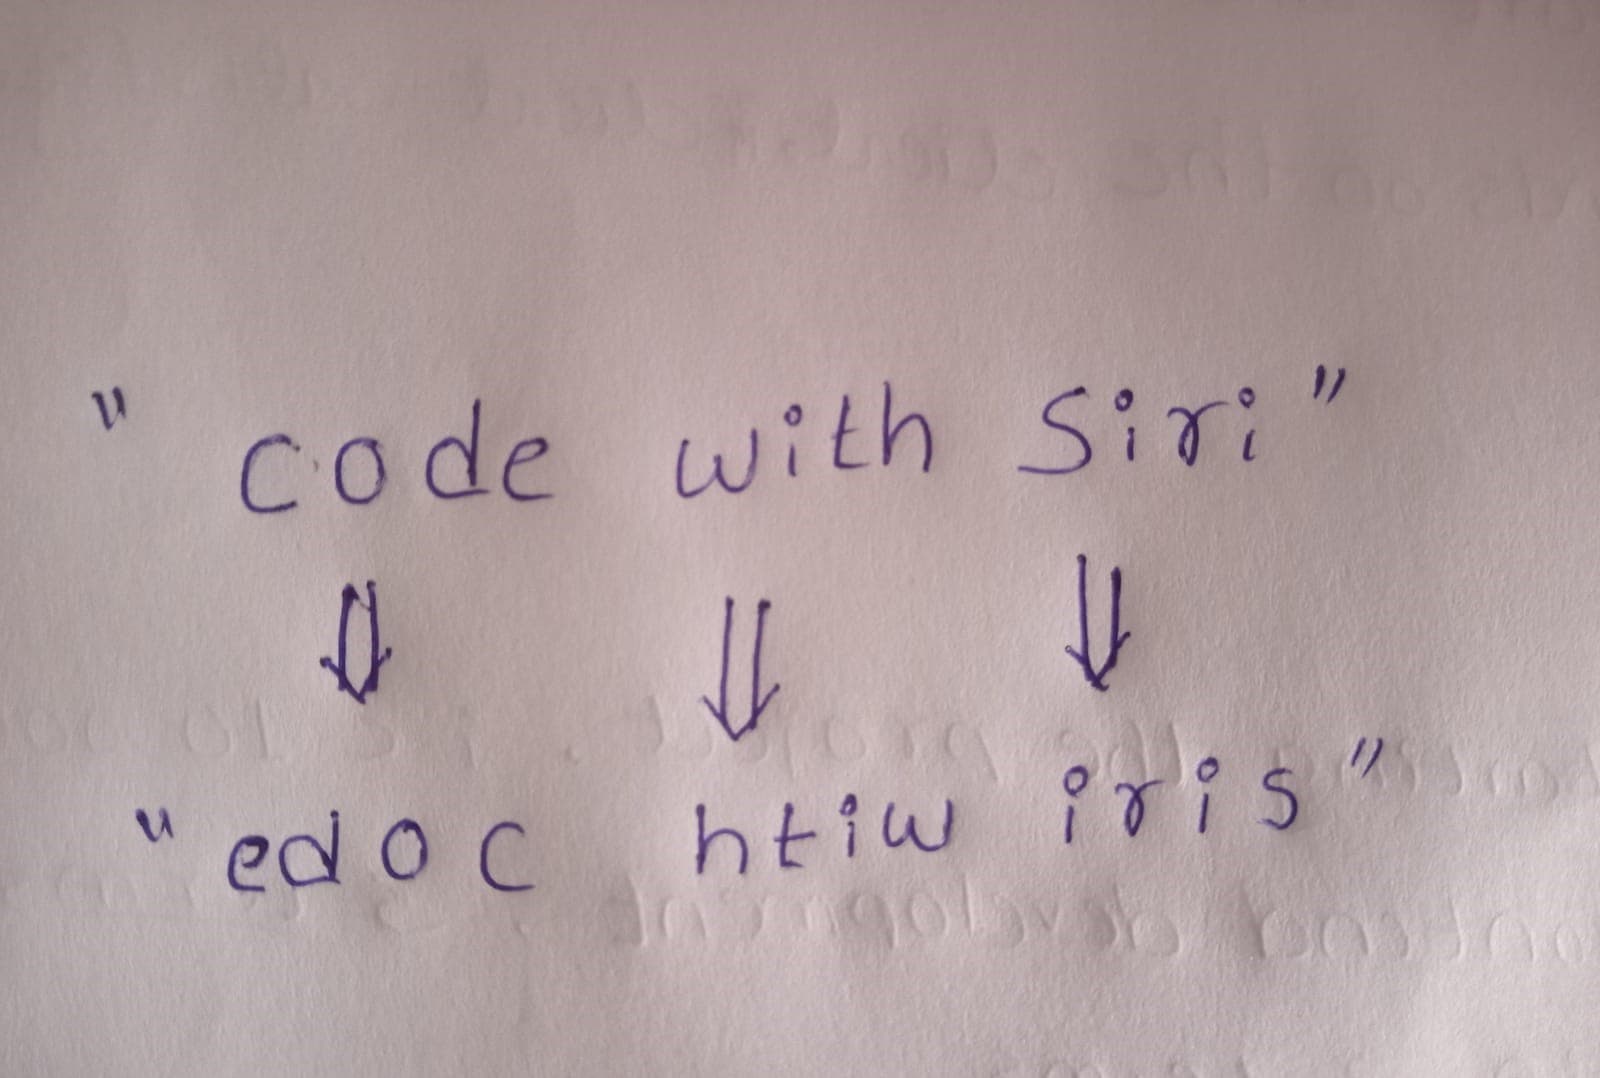 "code with Siri"
"edoc htiw iris"